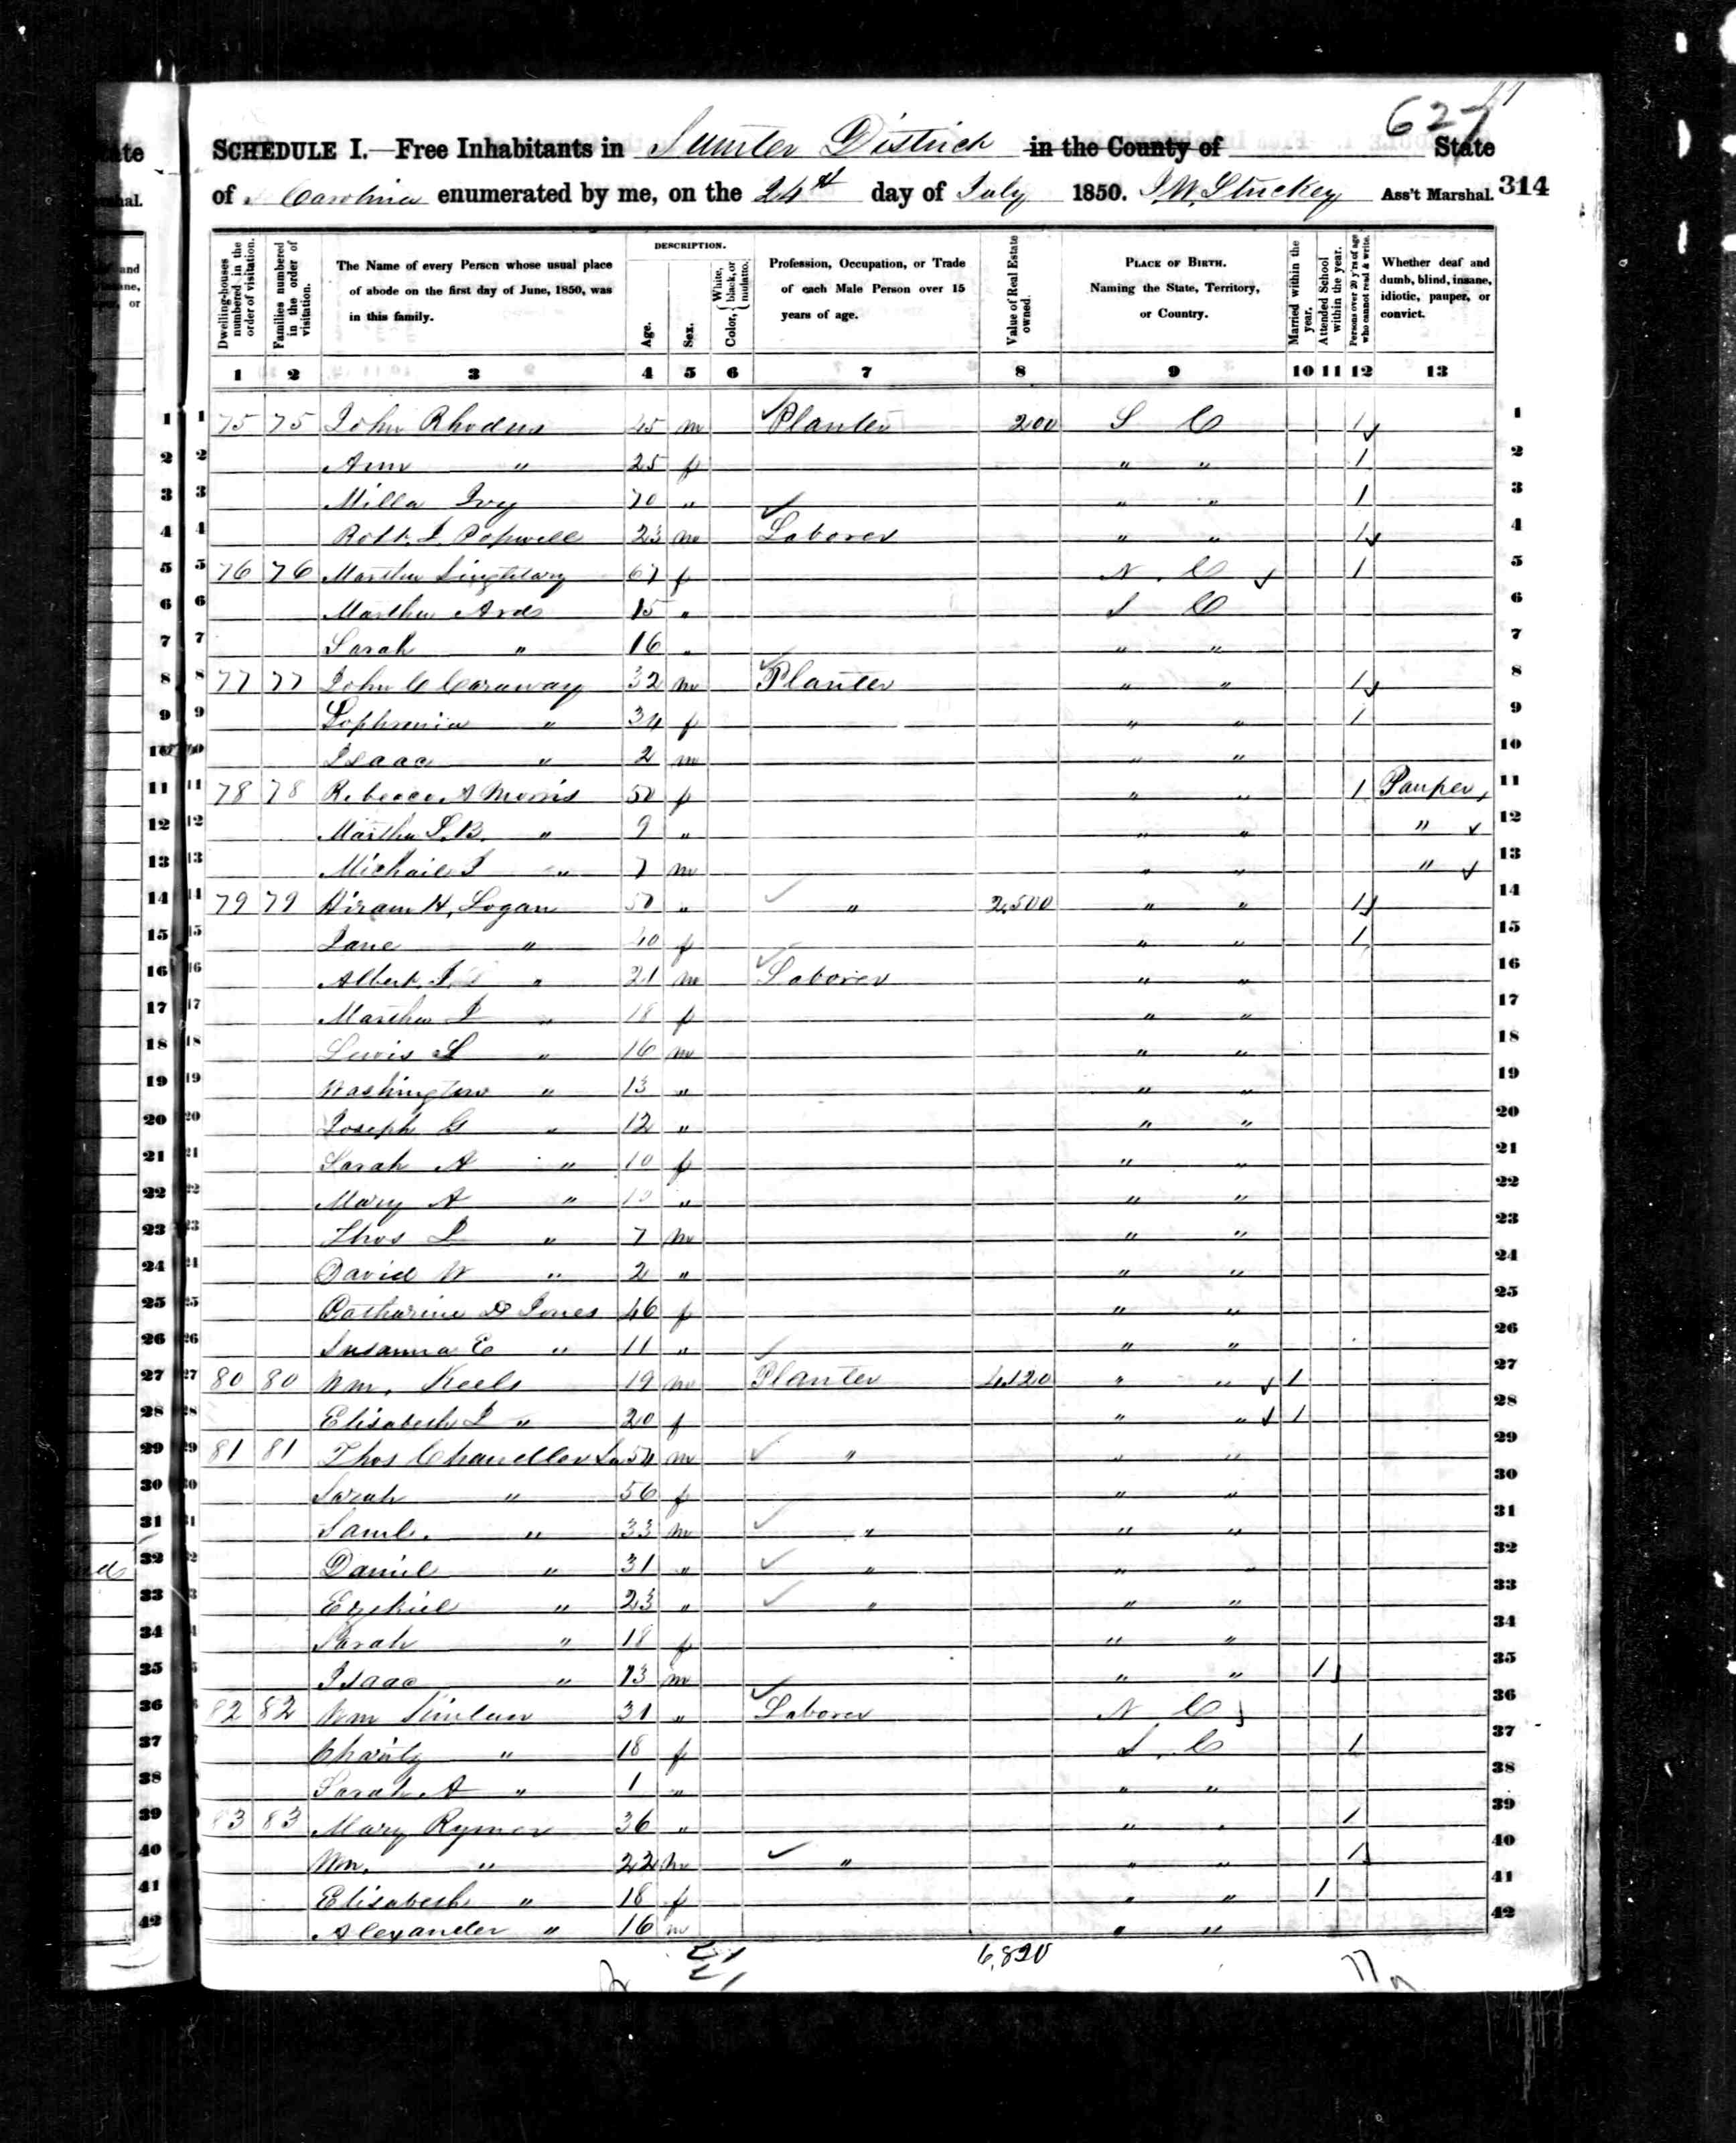 627
SCHEDULE I.—Free Inhabitants in Sumter District in the County of State
of S Carolina enumerated by me, on the 24th day of July 1850. J.W. Stuckey Ass't Marshal. 314
Dwelling-houses numbered in the order of visitation.
Families numbered in the order of visitation.
The Name of every Person whose usual place of abode on the first day of June, 1850, was in this family.
DESCRIPTION.
Age.
Sex.
Color, White, black, or mulatto.
Profession, Occupation, or Trade of each Male Person over 15 years of age.
Value of Real Estate owned.
PLACE OF BIRTH. Naming the State, Territory, or Country.
Married within the year.
Attended School within the year.
Persons over 20 y'rs of age who cannot read & write.
Whether deaf and dumb, blind, insane, idiotic, pauper, or convict.
1 2 3 4 5 6 7 8 9 10 11 12 13
1 75 75 John Rhodus 45 m Planter 200 S C 1 1
2 Ann " 25 f " " 1 2
3 Milla Ivy 70 " " " 1 3
4 Robt. J. Popwell 23 m Laborer " " 1 4
5 76 76 Martha Singletary 67 f N. C 1 5
6 Martha Ard 15 " S C 6
7 Sarah " 16 " " " 7
8 77 77 John C Caraway 32 m Planter " " 1 8
9 Sophronia " 34 f " " 1 9
10 Isaac " 2 m " " 10
11 78 78 Rebecca A Morris 50 f " " 1 Pauper 11
12 Martha S.B. " 9 " " " " 12
13 Michail J " 7 m " " " 13
14 79 79 Hiram H. Logan 50 " " 2,500 " " 1 14
15 Jane " 40 f " " 1 15
16 Albert J. " 21 m Laborer " " 16
17 Martha J " 18 f " " 17
18 Lewis S " 16 m " " 18
19 Washington " 13 " " " 19
20 Joseph G " 12 " " " 20
21 Sarah A " 10 f " " 21
22 Mary A " " " " 22
23 Thos J " 7 m " " 23
24 David W " 2 " " " 24
25 Catharine D Jones 46 f " " 25
26 Susanna E " 11 " " " 26
27 80 80 Wm. Keels 19 m Planter 4,120 " " 1 27
28 Elisabeth J " 20 f " " 1 28
29 81 81 Thos Chandler Sr 54 m " " " 29
30 Sarah " 56 f " " 30
31 Saml. " 33 m " " " 31
32 Daniel " 31 " " " " 32
33 Ezekiel " 23 " " " " 33
34 Sarah " 18 f " " 34
35 Isaac " 13 m " " 1 35
36 82 82 Wm 31 " Laborer N C 36
37 Charity " 18 f S. C 1 37
38 Sarah A " 1 " " " 38
39 83 83 Mary Rymer 36 " " " 1 39
40 Wm. " 22 m " " " 1 40
41 Elisabeth " 18 f " " 1 41
42 Alexander " 16 m " " 42
6,820